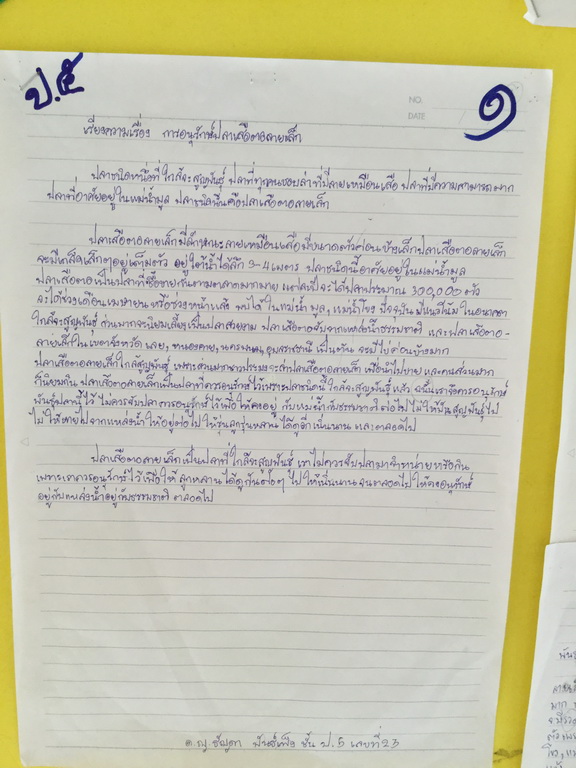 ป.๕
๑
NO.
DATE
เรียงความเรื่อง การอนุรักษ์ปลาเสือตอลายเล็ก
ปลาชนิดหนึ่งที่ใกล้จะสูญพันธุ์ ปลาที่ทุกคนชอบล่าที่มีลายเหมือนเสือ ปลาที่มีความสามารถมาก
ปลาที่อาศัยอยู่ในแม่น้ำมูล ปลาชนิดนี้คือปลาเสือตอลายเล็ก
ปลาเสือตอลายเล็กมีลักษณะลายเหมือนเสือมีขนาดตัวค่อนข้างเล็กปลาเสือตอลายเล็ก
จะมีเกล็ดเล็กๆอยู่เต็มตัว อยู่ใต้น้ำได้ลึก 3-4 เมตร ปลาชนิดนี้อาศัยอยู่ในแม่น้ำมูล
ปลาเสือตอเป็นปลาที่ซื้อขายกันตามตลาดมากมาย แต่ละปีจะได้ปลาประมาณ 300,000 ตัว
จะได้ช่วงเดือนเมษายนหรือช่วงหน้าแล้ง พบได้ในแม่น้ำมูล,แม่น้ำโขง ปัจจุบันมีแนวโน้มในอนาคต
ใกล้จะสูญพันธุ์ ส่วนมากจะนิยมเลี้ยงเป็นปลาสวยงาม ปลาเสือตอจับจากแหล่งน้ำธรรมชาติ และปลาเสือตอ-
ลายเล็กในเขตจังหวัด เลย, หนองคาย, นครพนม, อุบลราชธานี เป็นต้น จะมีไข่ค่อนข้างมาก
ปลาเสือตอลายเล็กใกล้สูญพันธุ์ เพราะส่วนมากชาวประมงจะล่าปลาเสือตอลายเล็ก เพื่อนำไปขาย และคนส่วนมาก
ก็นิยมกิน ปลาเสือตอลายเล็กเป็นปลาที่ควรอนุรักษ์ไว้เพราะปลาชนิดนี้ใกล้จะสูญพันธุ์แล้ว ฉนั้นเราจึงควรอนุรักษ์
พันธุ์ปลานี้ไว้ ไม่ควรจับปลาควรอนุรักษ์ไว้เพื่อให้คงอยู่ กับแม่น้ำกับธรรมชาติต่อไปไม่ให้มันสูญพันธุ์ไป
ไม่ให้หายไปจากแหล่งน้ำ ให้อยู่ต่อไปให้รุ่นลูกรุ่นหลานได้ดูอีกเนิ่นนาน และตลอดไป
ปลาเสือตอลายเล็กเป็นปลาที่ใกล้จะสูญพันธุ์ เราไม่ควรจับปลามาจำหน่ายหรือกิน
เพราะเราควรอนุรักษ์ไว้เพื่อให้ลูกหลานได้ดูกันต่อๆ ไปให้เนิ่นนานจนตลอดไปให้คงอนุรักษ์
อยู่กับแหล่งน้ำอยู่กับธรรมชาติตลอดไป
ด.ญ. ชั้น ป.5 เลขที่23